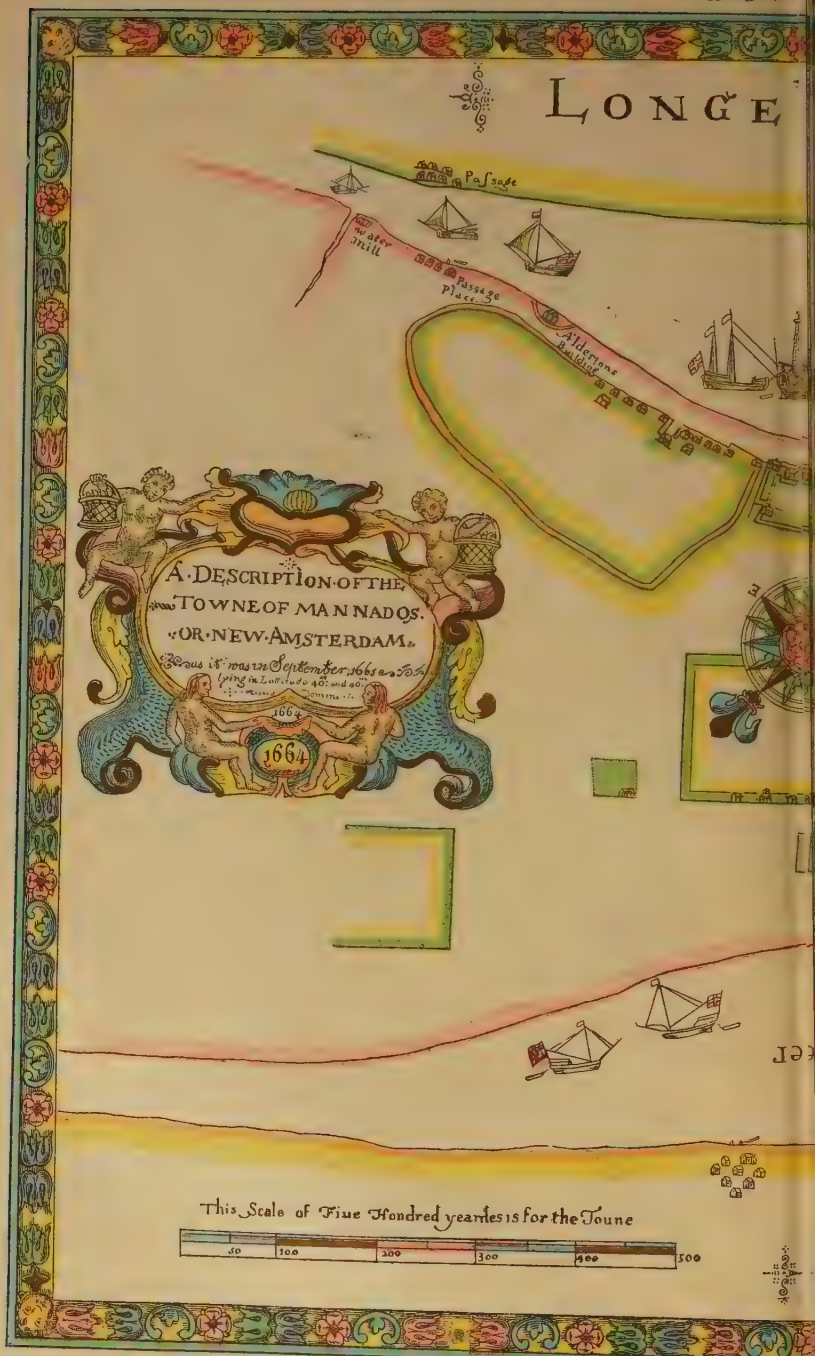 LONGE
Passage
water
mill
Passage
Place
Aldertons
Building
A·DESCRIPTION·OF THE
TOWNE OF MANNADOS.
·OR·NEW·AMSTERDAM·
as it was in September 1661
lying in Latitude 40 and 40
Domini
1664
1664
E
This Scale of Fiue Hondred yeardes is for the Toune
50 100 200 300 400 500